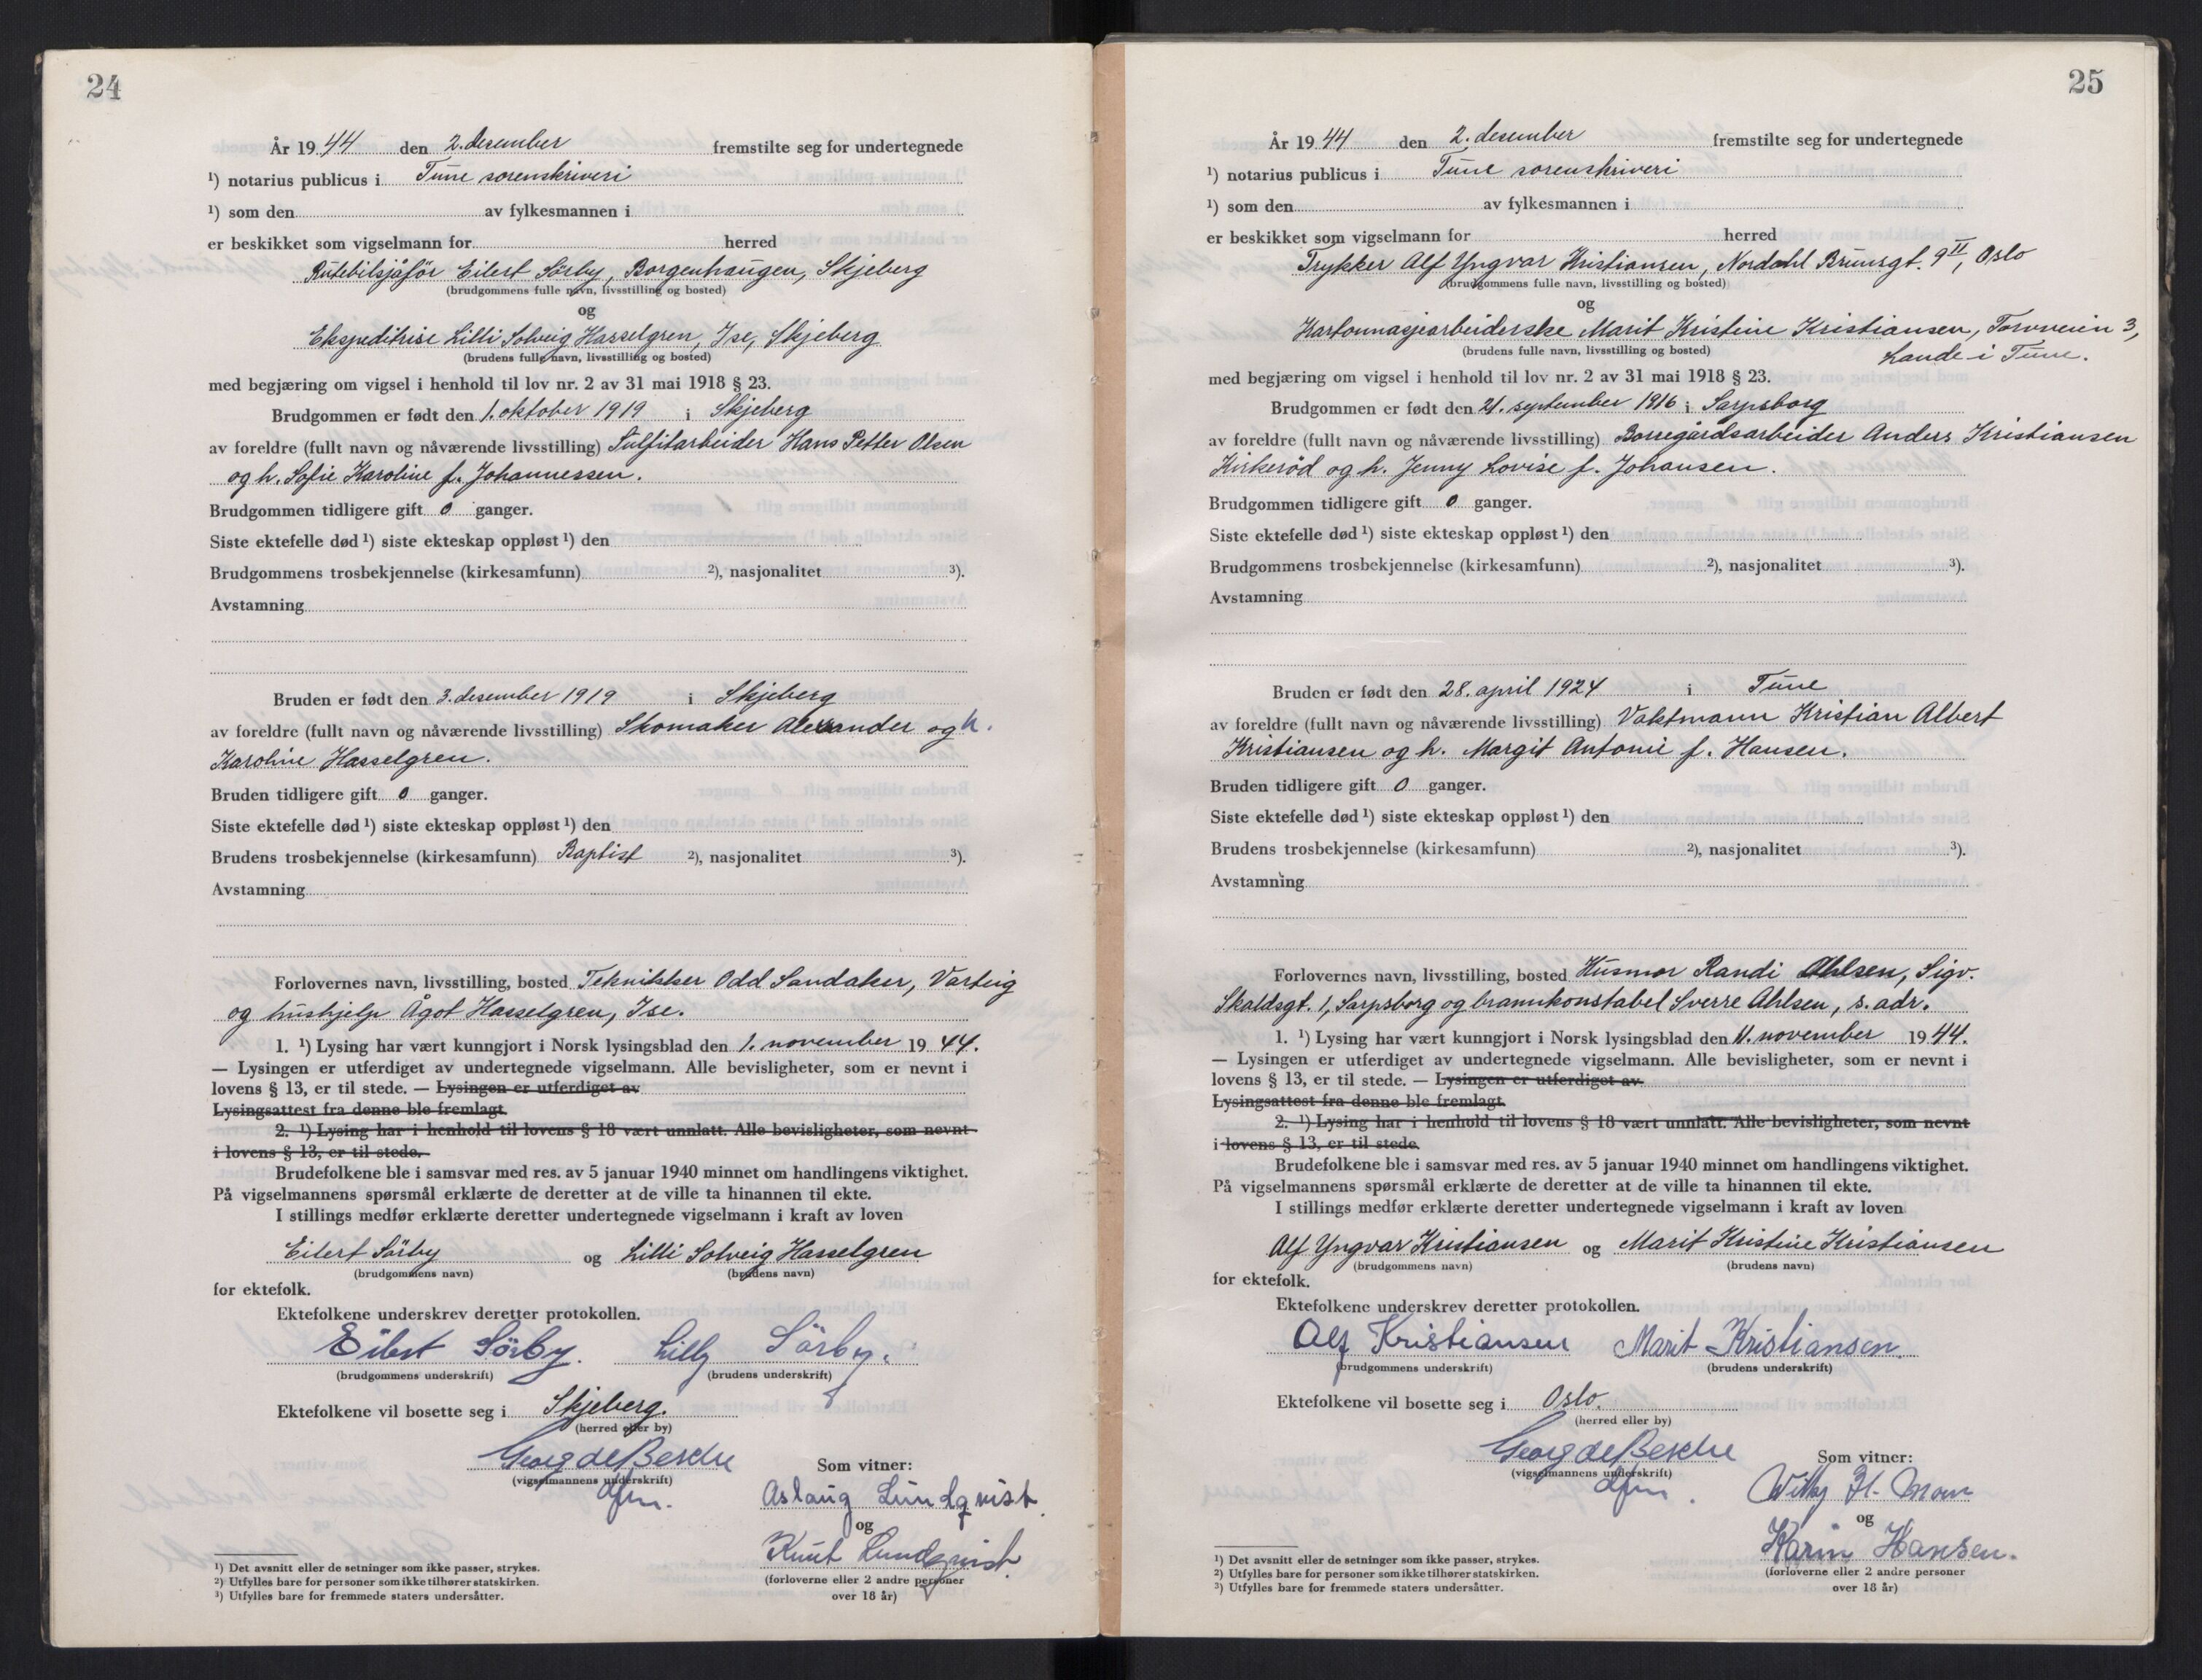 24
År 19 44 den 2. desember fremstilte seg for undertegnede
¹) notarius publicus i Tune sorenskriveri
¹) som den av fylkesmannen i
er beskikket som vigselmann for herred
Rutebilsjåför Eilert Sörby, Borgenhaugen, Skjeberg
(brudgommens fulle navn, livsstilling og bosted)
og
Ekspeditrise Lilli Solveig Hasselgren, Ise, Skjeberg
(brudens fulle navn, livsstilling og bosted)
med begjæring om vigsel i henhold til lov nr. 2 av 31 mai 1918 § 23.
Brudgommen er født den 1. oktober 1919 i Skjeberg
av foreldre (fullt navn og nåværende livsstilling) Sulfitarbeider Hans Petter Olsen
og h. Sofie Karoline f. Johannessen.
Brudgommen tidligere gift 0 ganger.
Siste ektefelle død ¹) siste ekteskap oppløst ¹) den
Brudgommens trosbekjennelse (kirkesamfunn) ²), nasjonalitet ³).
Avstamning
Bruden er født den 3. desember 1919 i Skjeberg
av foreldre (fullt navn og nåværende livsstilling) Skomaker Alexander og h.
Karoline Hasselgren.
Bruden tidligere gift 0 ganger.
Siste ektefelle død ¹) siste ekteskap oppløst ¹) den
Brudens trosbekjennelse (kirkesamfunn) Baptist ²), nasjonalitet ³).
Avstamning
Forlovernes navn, livsstilling, bosted Teknikker Odd Sandaker, Varteig
og hushjelp Ågot Hasselgren, Ise.
1. ¹) Lysing har vært kunngjort i Norsk lysingsblad den 1. november 19 44.
— Lysingen er utferdiget av undertegnede vigselmann. Alle bevisligheter, som er nevnt i
lovens § 13, er til stede. — Lysingen er utferdiget av
Lysingsattest fra denne ble fremlagt.
2. ¹) Lysing har i henhold til lovens § 18 vært unnlatt. Alle bevisligheter, som nevnt
i lovens § 13, er til stede.
Brudefolkene ble i samsvar med res. av 5 januar 1940 minnet om handlingens viktighet.
På vigselmannens spørsmål erklærte de deretter at de ville ta hinannen til ekte.
I stillings medfør erklærte deretter undertegnede vigselmann i kraft av loven
Eilert Sörby og Lilli Solveig Hasselgren
(brudgommens navn) (brudens navn)
for ektefolk.
Ektefolkene underskrev deretter protokollen.
Eilert Sörby. Lilly Sörby.
(brudgommens underskrift) (brudens underskrift)
Ektefolkene vil bosette seg i Skjeberg.
(herred eller by)
Georg de Besche
(vigselmannens underskrift)
dfm.
Som vitner:
Aslaug Lundqvist.
og
Knut Lundqvist.
(forloverne eller 2 andre personer
over 18 år)
¹) Det avsnitt eller de setninger som ikke passer, strykes.
²) Utfylles bare for personer som ikke tilhører statskirken.
³) Utfylles bare for fremmede staters undersåtter.
25
År 19 44 den 2. desember fremstilte seg for undertegnede
¹) notarius publicus i Tune sorenskriveri
¹) som den av fylkesmannen i
er beskikket som vigselmann for herred
Trykker Alf Yngvar Kristiansen, Nordahl Brunsgt. 9 II, Oslo
(brudgommens fulle navn, livsstilling og bosted)
og
Kartonnasjearbeiderske Marit Kristine Kristiansen, Torvveien 3,
(brudens fulle navn, livsstilling og bosted) Lande i Tune.
med begjæring om vigsel i henhold til lov nr. 2 av 31 mai 1918 § 23.
Brudgommen er født den 21. september 1916 i Sarpsborg
av foreldre (fullt navn og nåværende livsstilling) Borregårdsarbeider Anders Kristiansen
Kirkeröd og h. Jenny Lovise f. Johansen.
Brudgommen tidligere gift 0 ganger.
Siste ektefelle død ¹) siste ekteskap oppløst ¹) den
Brudgommens trosbekjennelse (kirkesamfunn) ²), nasjonalitet ³).
Avstamning
Bruden er født den 28. april 1924 i Tune
av foreldre (fullt navn og nåværende livsstilling) Vaktmann Kristian Albert
Kristiansen og h. Margit Antonie f. Hansen.
Bruden tidligere gift 0 ganger.
Siste ektefelle død ¹) siste ekteskap oppløst ¹) den
Brudens trosbekjennelse (kirkesamfunn) ²), nasjonalitet ³).
Avstamning
Forlovernes navn, livsstilling, bosted Husmor Randi Ahlsen, Sigv.
Skaldsgt. 1, Sarpsborg og brannkonstabel Sverre Ahlsen, s. adr.
1. ¹) Lysing har vært kunngjort i Norsk lysingsblad den 11. november 19 44.
— Lysingen er utferdiget av undertegnede vigselmann. Alle bevisligheter, som er nevnt i
lovens § 13, er til stede. — Lysingen er utferdiget av
Lysingsattest fra denne ble fremlagt.
2. ¹) Lysing har i henhold til lovens § 18 vært unnlatt. Alle bevisligheter, som nevnt
i lovens § 13, er til stede.
Brudefolkene ble i samsvar med res. av 5 januar 1940 minnet om handlingens viktighet.
På vigselmannens spørsmål erklærte de deretter at de ville ta hinannen til ekte.
I stillings medfør erklærte deretter undertegnede vigselmann i kraft av loven
Alf Yngvar Kristiansen og Marit Kristine Kristiansen
(brudgommens navn) (brudens navn)
for ektefolk.
Ektefolkene underskrev deretter protokollen.
Alf Kristiansen Marit Kristiansen.
(brudgommens underskrift) (brudens underskrift)
Ektefolkene vil bosette seg i Oslo.
(herred eller by)
Georg de Besche
(vigselmannens underskrift)
dfm.
Som vitner:
Willy H.
og
Karin Hansen.
(forloverne eller 2 andre personer
over 18 år)
¹) Det avsnitt eller de setninger som ikke passer, strykes.
²) Utfylles bare for personer som ikke tilhører statskirken.
³) Utfylles bare for fremmede staters undersåtter.